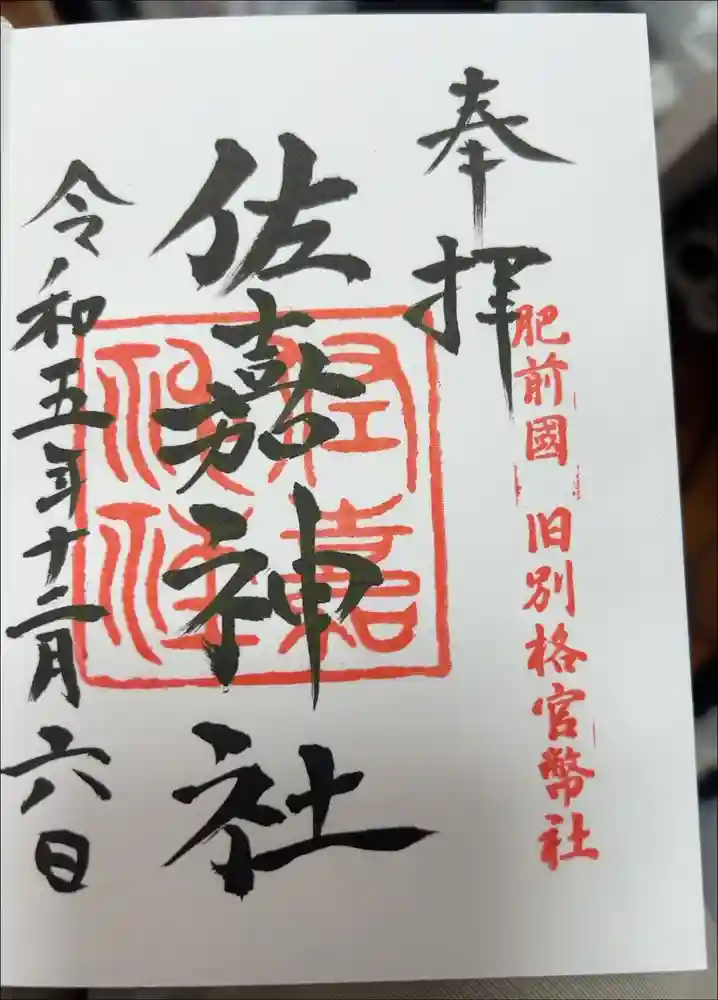 奉拝
肥前國 旧別格官幣社
佐嘉神社
令和五年十二月六日